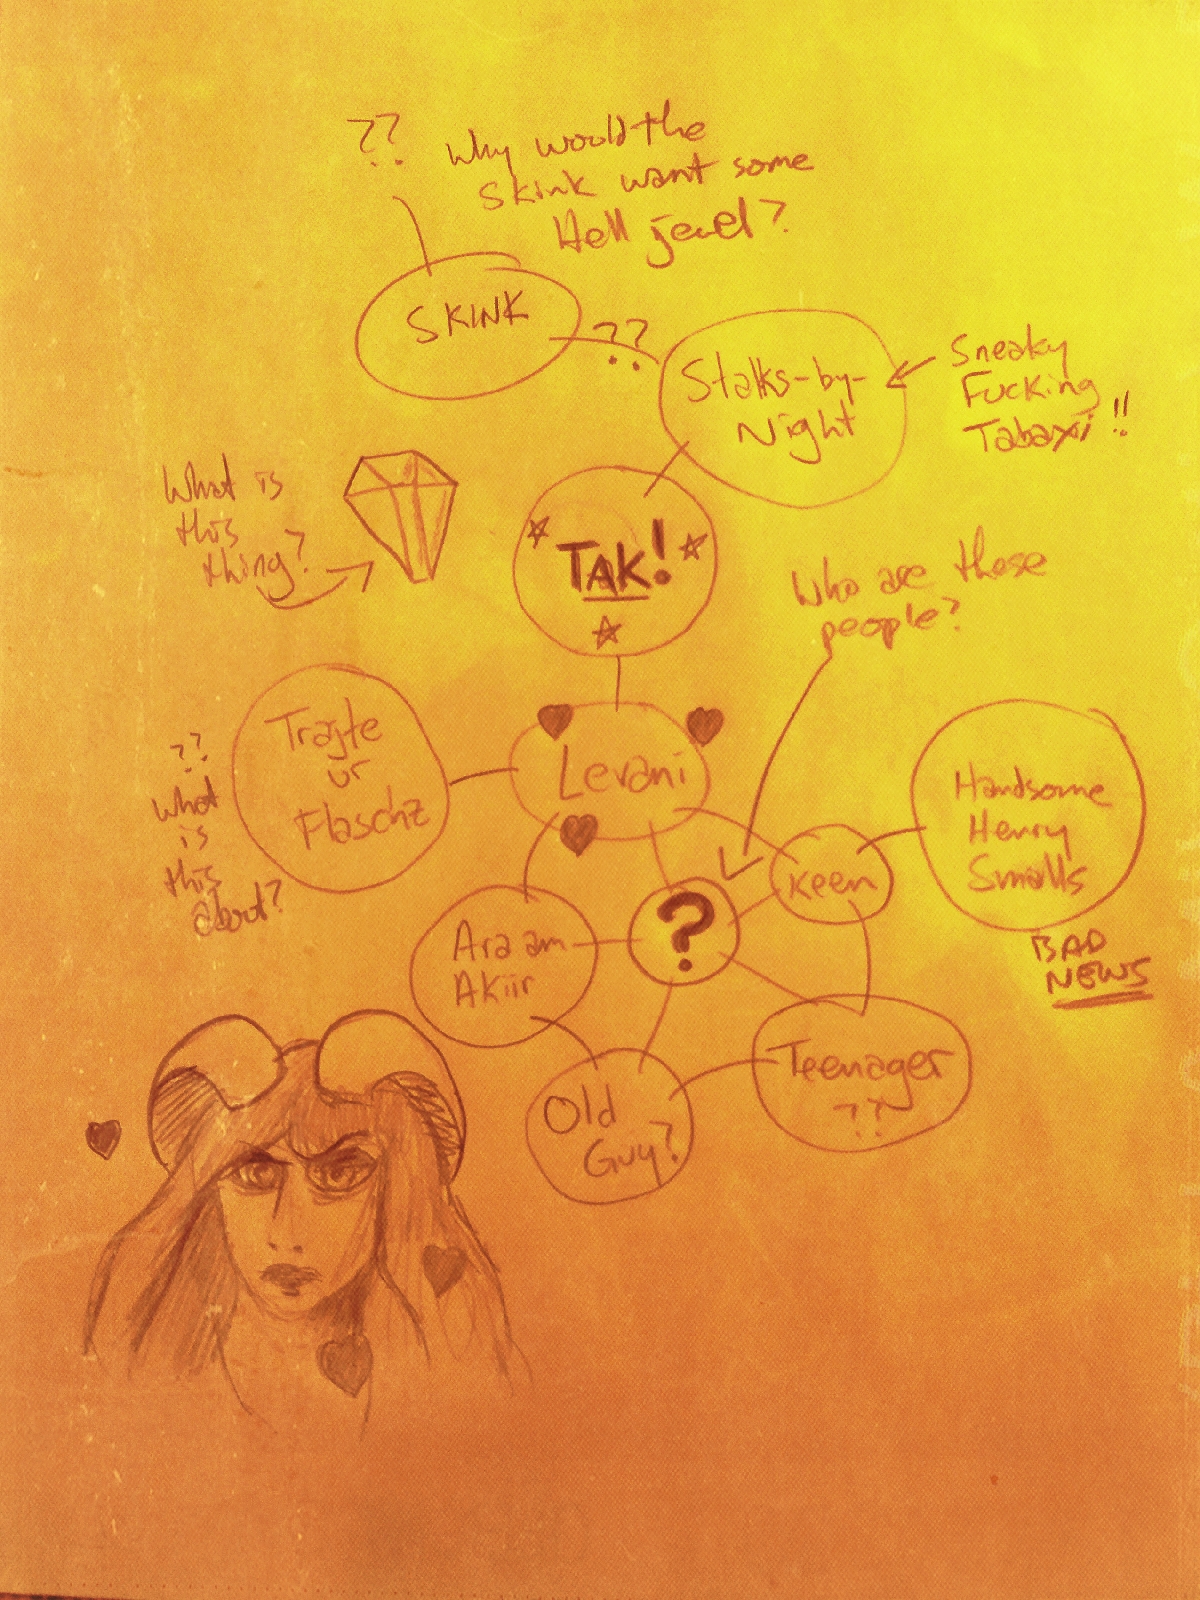 ??
Why would the
Skink want some
Hell jewel?
SKINK
??
Stalks-by-
Night
Sneaky
Fucking
Tabaxi!!
What is
this
thing?
TAK!
Who are these
people?
Trajte
ur
Flaschz
??
What
is
this
about?
Levani
Keen
Handsome
Henry
Smalls
BAD
NEWS
?
Ara am
Akiir
Old
Guy?
Teenager
??